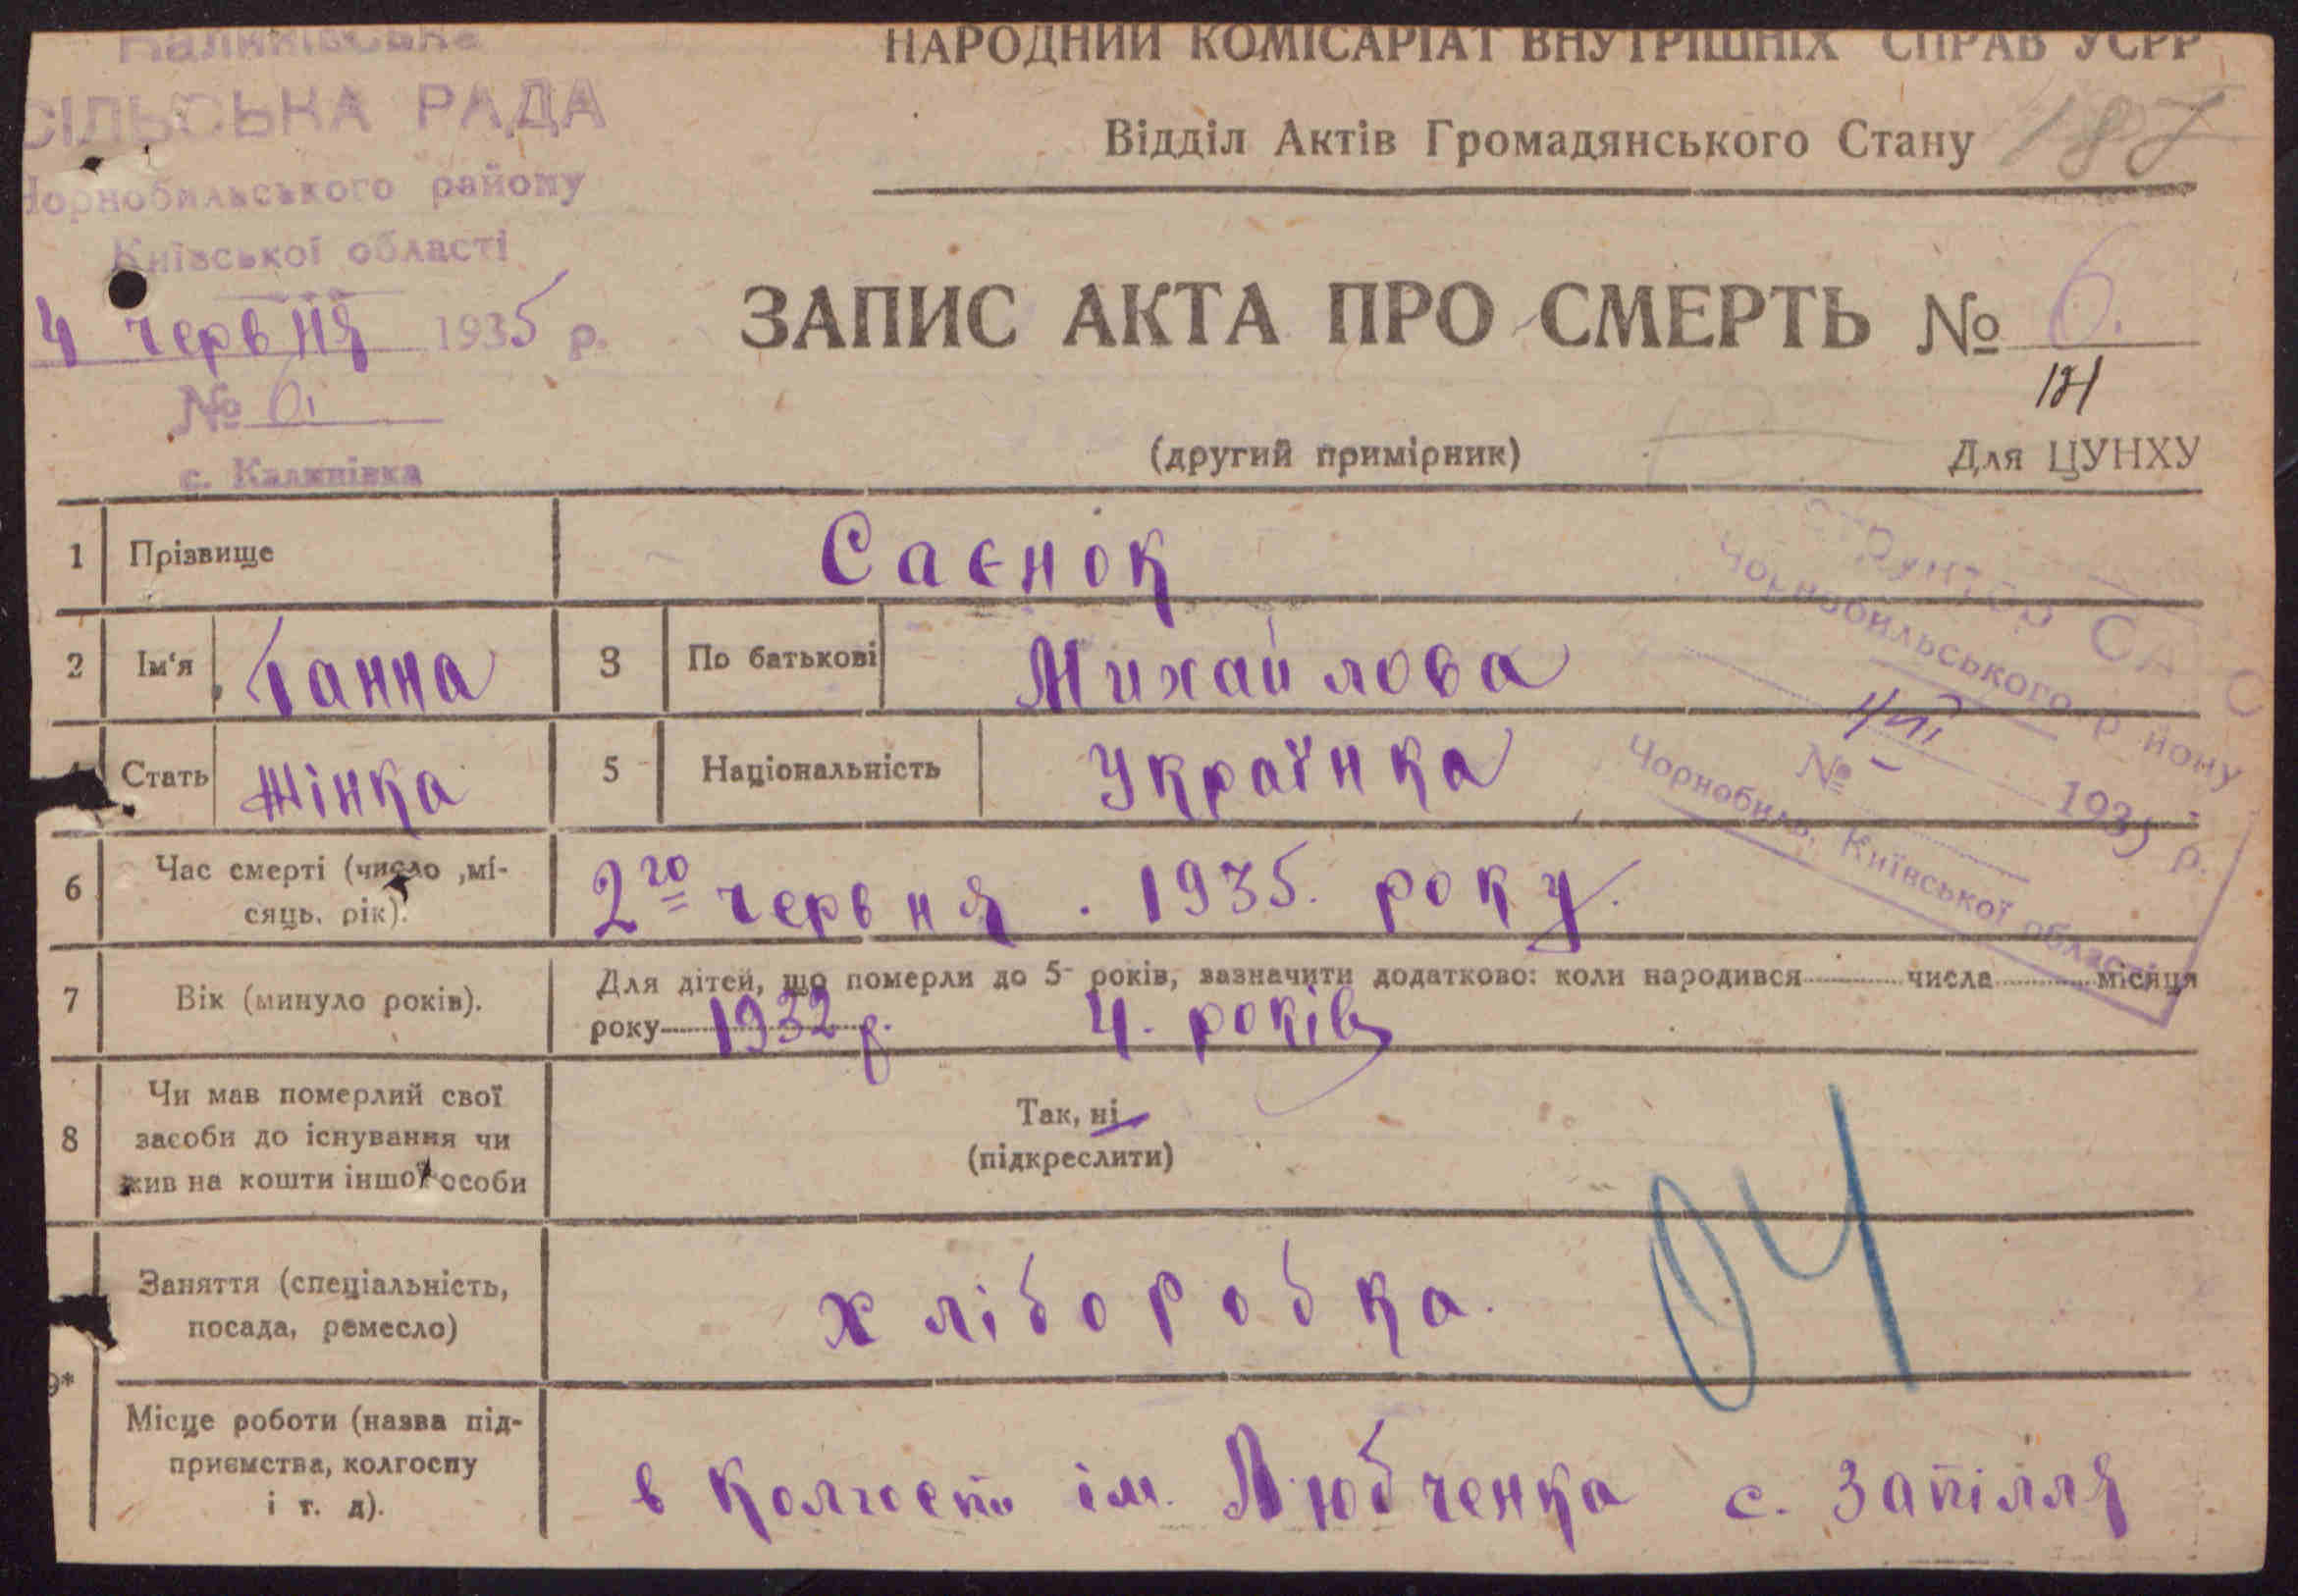 Калинівська
СІЛЬСЬКА РАДА
Чорнобильського району
Київської області
4 червня 1935 р.
№ 6.
с. Калинівка
НАРОДНИЙ КОМІСАРІАТ ВНУТРІШНІХ СПРАВ УСРР
Відділ Актів Громадянського Стану 187
ЗАПИС АКТА ПРО СМЕРТЬ № 6.
(другий примірник)
Для ЦУНХУ
САГС
Чорнобильського району
№ - 1935 р.
Чорнобиль, Київської області
1 Прізвище Саєнок
2 Ім'я Ганна 3 По батькові Михайлова
4 Стать жінка 5 Національність Українка
6 Час смерті (число ,мі-
сяць, рік). 2го червня . 1935. року.
7 Вік (минуло років). Для дітей, що померли до 5 років, зазначити додатково: коли народився числа місяця
року 1932 р. 4. років
8 Чи мав померлий свої
засоби до існування чи
жив на кошти іншої особи
Так, ні
(підкреслити)
04
9* Заняття (спеціальність,
посада, ремесло) хліборобка.
Місце роботи (назва під-
приємства, колгоспу
і т. д).
в колгоспі ім. Любченка с. Запілля